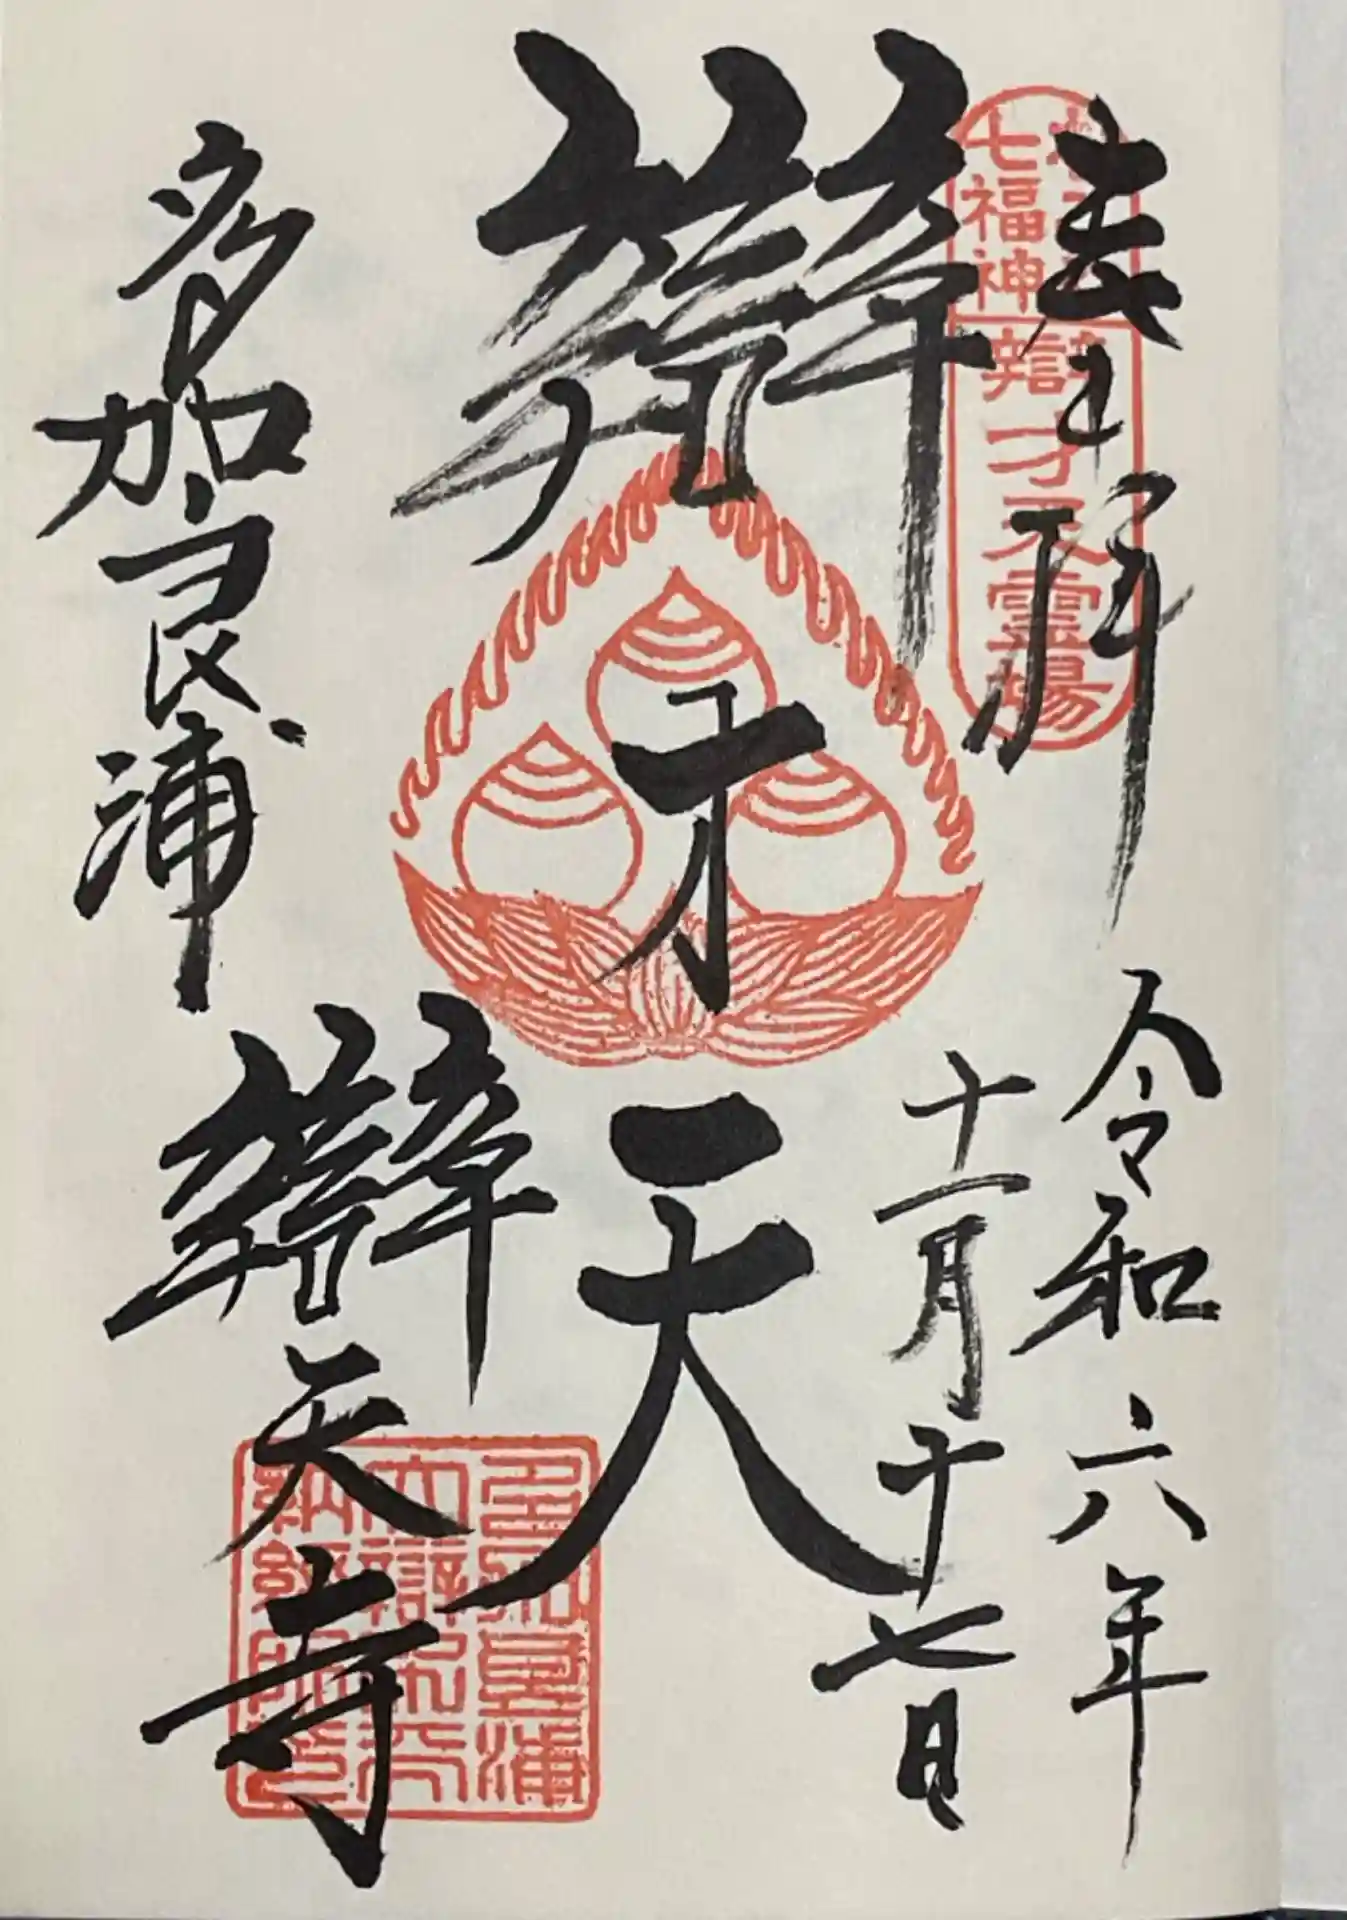 奉拝
令和六年
十一月十七日
七福神
辯才天霊場
辯才天
多加良浦
辯天寺